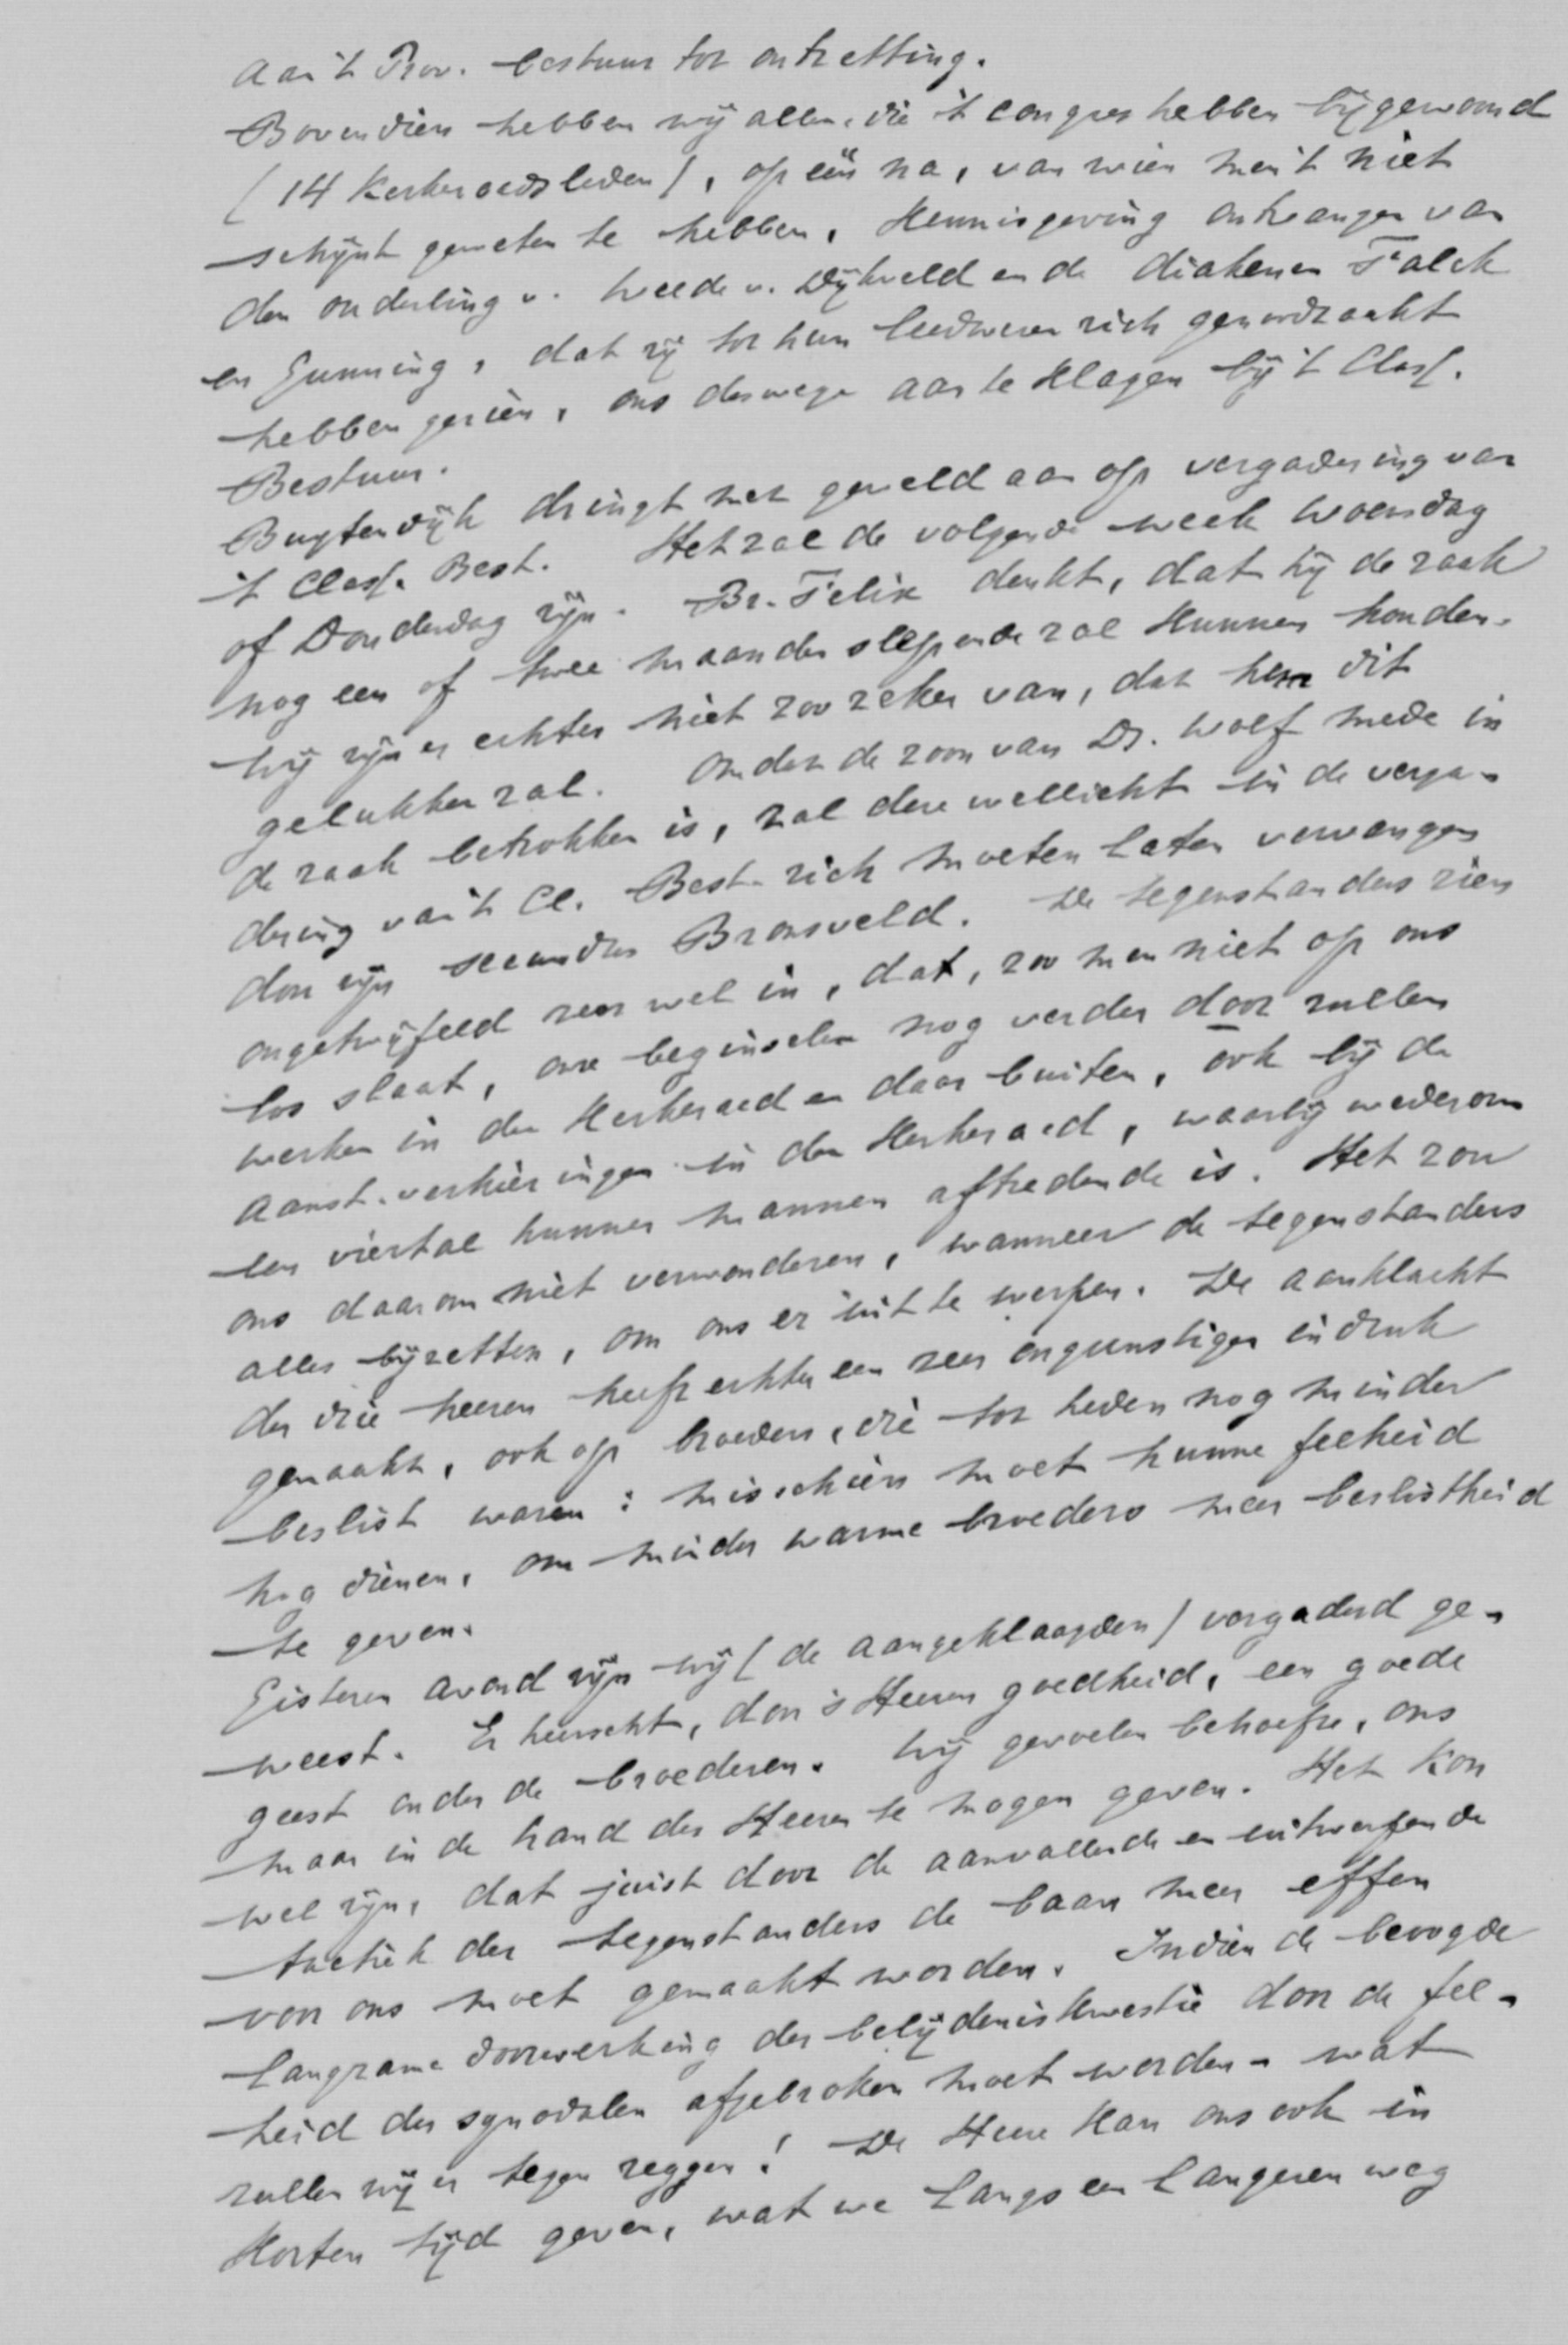 aan 't Prov. bestuur tot ontzetting.
Bovendien hebben wij allen, die 't congres hebben bijgewoond
(14 kerkeraadsleden), op één na, van wien men 't niet
schijnt geweten te hebben, kennisgeving ontvangen van
den ouderling v. Weede v. Dijkveld en de diakenen Falck
en Gunning, dat zij tot hun leedwezen zich genoodzaakt
hebben gezien, ons deswege aan te klagen bij 't Class.
Bestuur.
Buytendijk dringt met geweld aan op vergadering van
't Class. Best. Het zal de volgende week Woensdag
of Donderdag zijn. Br. Felix denkt, dat hij de zaak
nog een of twee maanden slepende zal kunnen houden.
Wij zijn er echter niet zoo zeker van, dat hem dit
gelukken zal. Omdat de zoon van Ds. Wolf mede in
de zaak betrokken is, zal deze wellicht in de verga-
dering van 't Cl. Best. zich moeten laten vervangen
door zijn secundus Bronsveld. De tegenstanders zien
ongetwijfeld zeer wel in, dat, zoo men niet op ons
los slaat, onze beginselen nog verder door zullen
werken in den kerkeraad en daar buiten, ook bij de
aanst. verkiezingen in den kerkeraad, waarbij wederom
een viertal hunner mannen aftredende is. Het zou
ons daarom niet verwonderen, wanneer de tegenstanders
alles bijzetten, om ons er uit te werpen. De aanklacht
der drie heeren heeft echter een zeer ongunstigen indruk
gemaakt, ook op broeders, die tot heden nog minder
beslist waren: misschien moet hunne felheid
nog dienen, om minder warme broeders meer beslistheid
te geven.
Gisteren avond zijn wij (de aangeklaagden) vergaderd ge-
weest. Er heerscht, door 's Heeren goedheid, een goede
geest onder de broederen. Wij gevoelen behoefte, ons
maar in de hand des Heeren te mogen geven. Het kon
wel zijn, dat juist door de aanvallende en uitwerpende
tactiek der tegenstanders de baan meer effen
voor ons moet gemaakt worden. Indien de beoogde
langzame doorwerking der belijdeniskwestie door de fel-
heid der synodalen afgebroken moet worden - wat
zullen wij er tegen zeggen! De Heere kan ons ook in
korten tijd geven, wat we langs een langeren weg